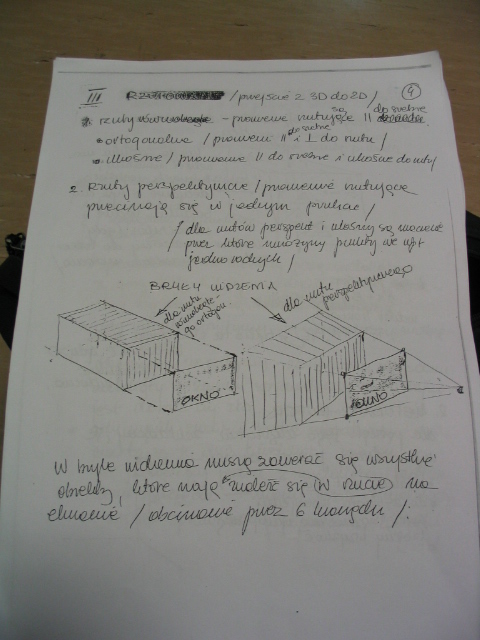 III RZUTOWANIE /przejście z 3D do 2D/ 4
1. rzuty równoległe - promienie rzutujące są || do siebie
• ortogonalne /promienie || do siebie i ⊥ do rzutu/
• ukośne /promienie || do siebie i ukośne do rzutu/
2. Rzuty perspektywiczne /promienie rzutujące
przecinają się w jednym punkcie/
/dla rzutów perspekt i ukośnych są macierze
przez które mnożymy punkty we wsp
jednorodnych/
BRYŁY WIDZENIA
dla rzutu
równoległe-
go ortogon.
dla rzutu
perspektywicznego
OKNO
OKNO
W bryle widzenia muszą zawierać się wszystkie
obiekty, które mają znaleźć się w rzucie na
ekranie /obcinanie przez 6 krawędzi/: